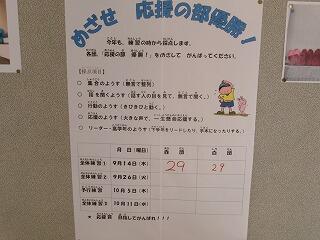 めざせ 応援の部優勝！
今年も、練習の時から採点します。
各団、「応援の部 優勝！」をめざして がんばってください。
【採点項目】
○ 集合のようす（無言で整列）
○ 話を聞くようす（話す人の目を見て、無言で聞く。）
○ 行動のようす（きびきびと動く。）
○ 応援のようす（大きな声で、一生懸命応援する。）
○ リーダー・高学年のようす（下学年をリードしたり、手本になったりする。）
月 日（曜日） 白団
全体練習１ ９月１４日（木） 29 29
全体練習２ ９月２６日（火）
予行練習 １０月５日（木）
全体練習３ １０月１１日（水）
＊ 応援賞 目指してがんばれ！！！